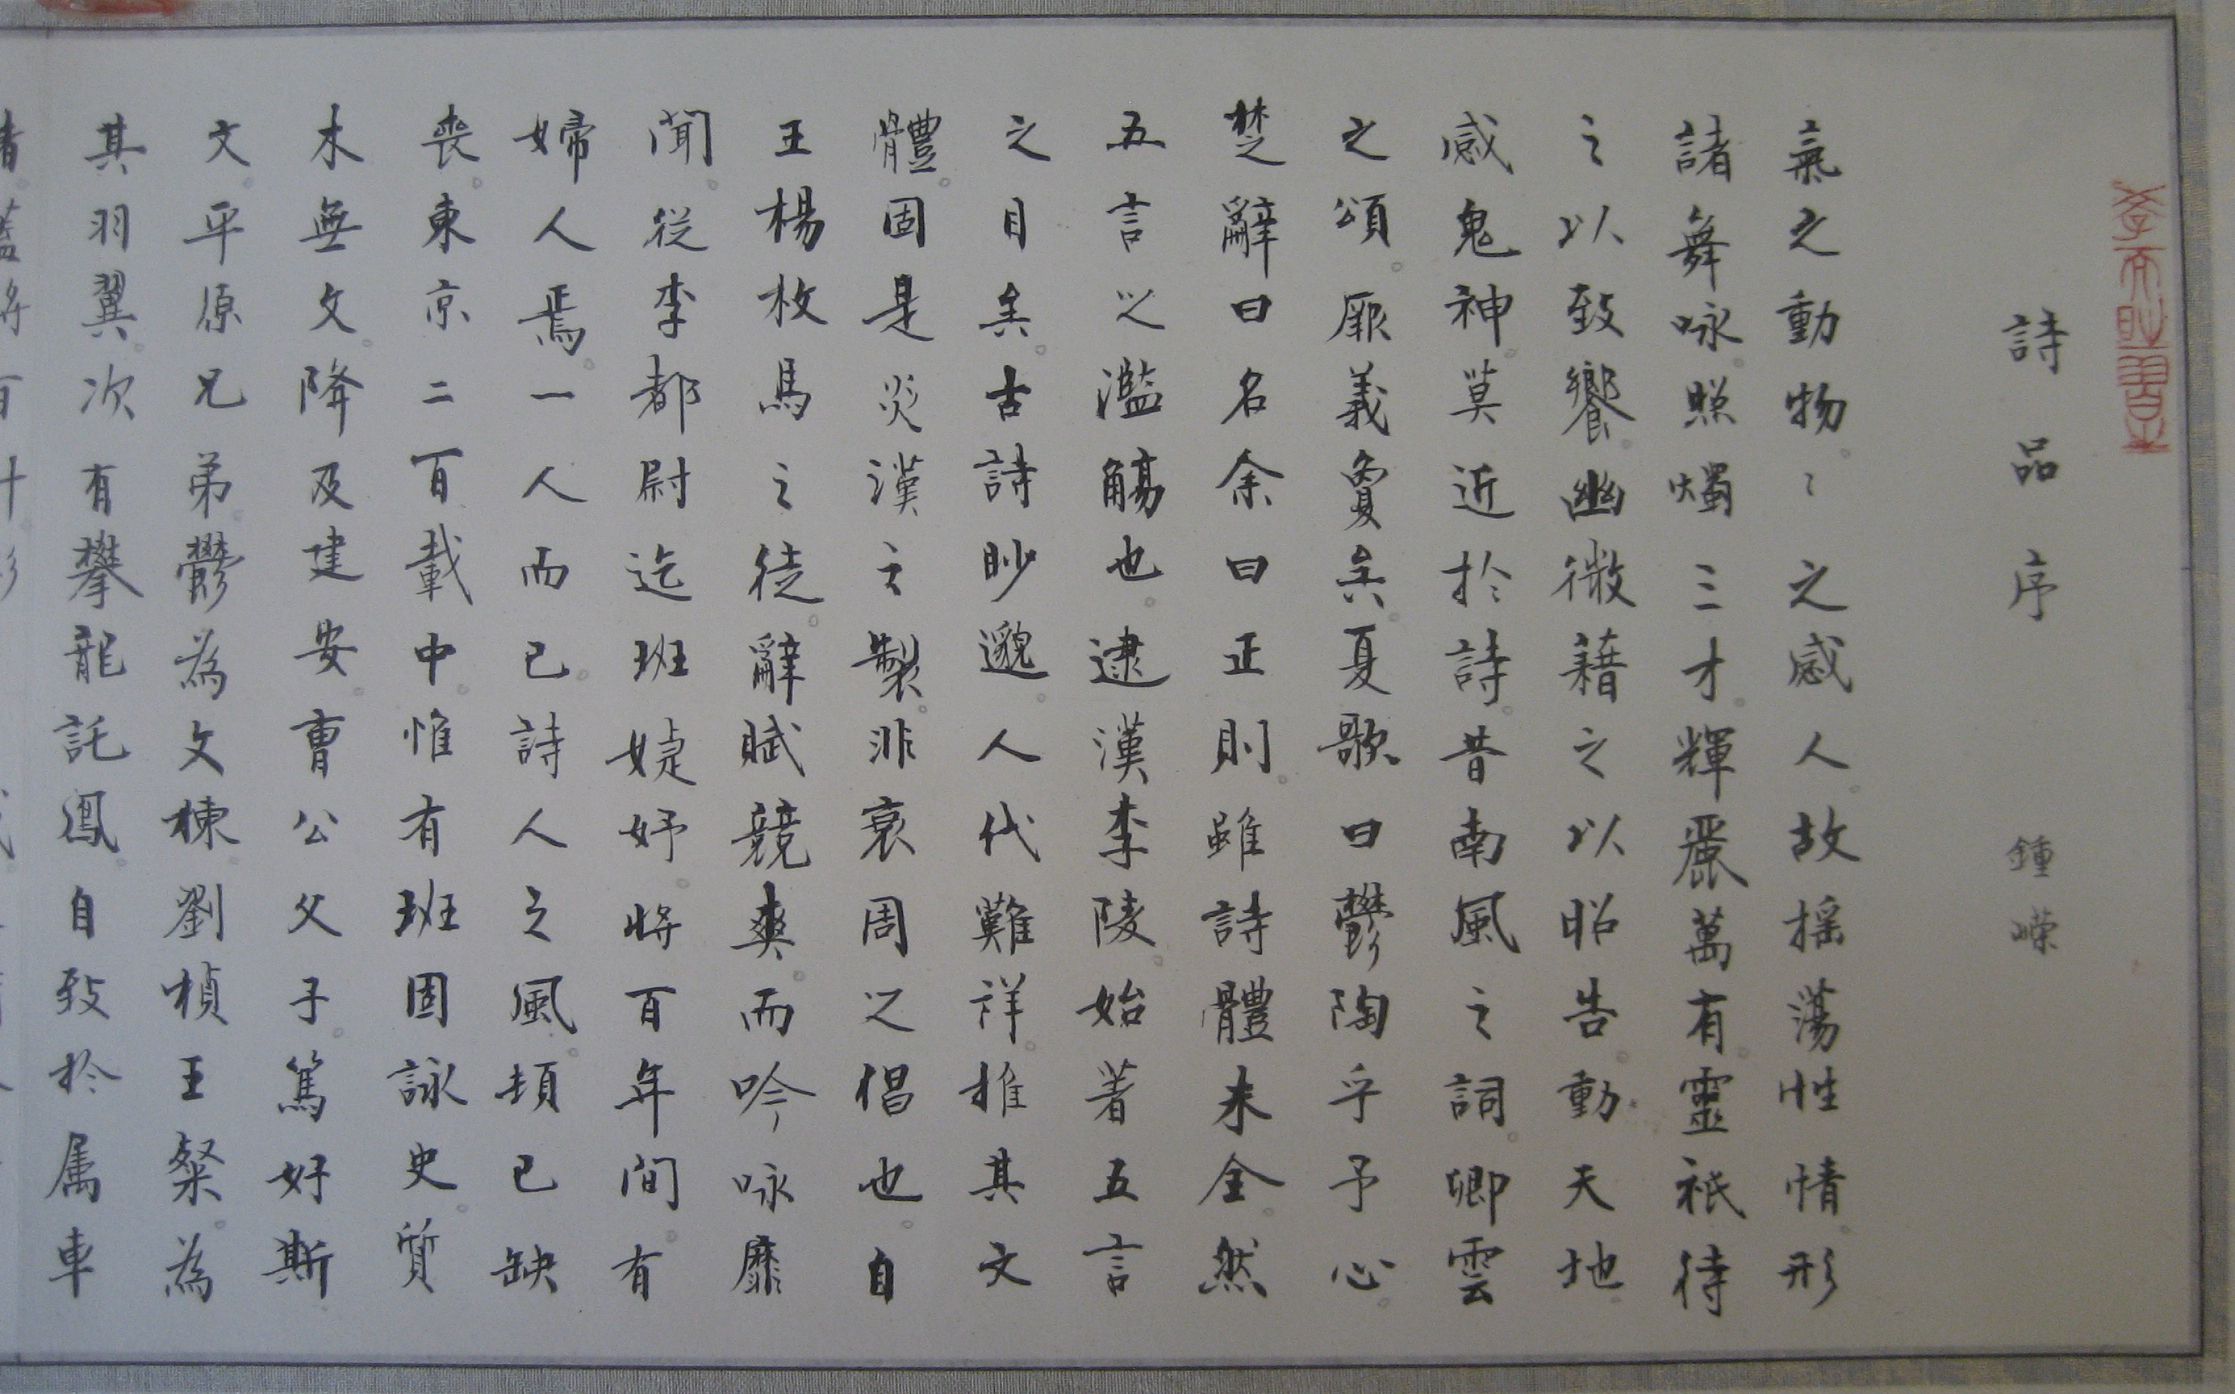 詩品序 鍾嶸
氣之動物〻之感人故搖蕩性情形
諸舞咏照燭三才輝麗萬有靈祇待
之以致饗幽微藉之以昭告動天地
感鬼神莫近於詩昔南風之詞卿雲
之頌厥義敻矣夏歌曰鬱陶乎予心
楚辭曰名余曰正則雖詩體未全然
五言之濫觴也逮漢李陵始著五言
之目矣古詩眇邈人代難詳推其文
體固是炎漢之製非衰周之倡也自
王楊枚馬之徒辭賦競爽而吟咏靡
聞從李都尉迄班婕妤將百年間有
婦人焉一人而已詩人之風頓已缺
喪東京二百載中惟有班固詠史質
木無文降及建安曹公父子篤好斯
文平原兄弟鬱為文棟劉楨王粲為
其羽翼次有攀龍託鳳自致於属車